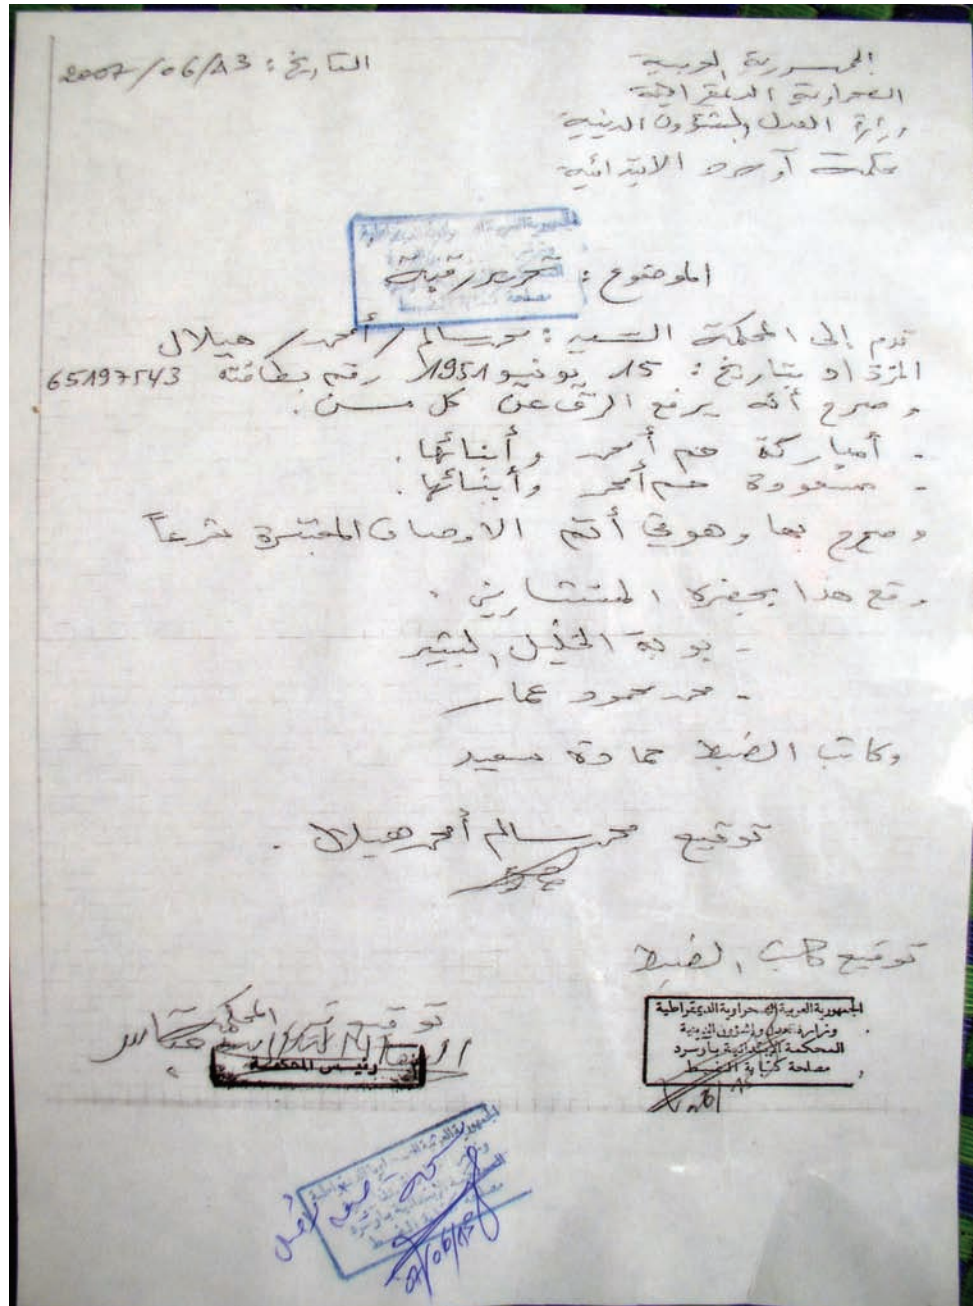 الجمهورية العربية
الصحراوية الديمقراطية
وزارة العدل والشؤون الدينية
محكمة آوسرد الابتدائية
التاريخ: 2007/06/13
الموضوع: تحرير رقبة
قدم إلى المحكمة السيد: محمد سالم / أمحمد / هيلال
المزداد بتاريخ: 15 يونيو 1951 رقم بطاقته 65197543
وصرح أنه يرفع الرق عن كل من.
- أمباركة أمحمد وأبنائها.
- مسعودة أمحمد وأبنائها.
وصرح بها وهو في أتم الاوصاف المعتبرة شرعاً
وقع هذا بحضرة المستشارين.
- بوبة الخليل البشير
- محمد محمود عمار
وكاتب الضبط حمادة سعيد
توقيع محمد سالم أمحمد هيلال.
توقيع كاتب الضبط
الجمهورية العربية الصحراوية الديمقراطية
وزارة العدل والشؤون الدينية
المحكمة الابتدائية بآوسرد
مصلحة كتابة الضبط
المحكمة
رئيس المحكمة